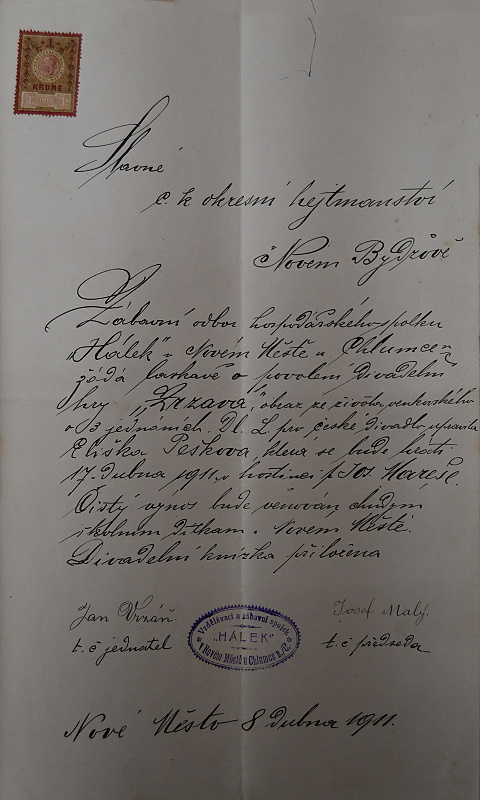 1
KRONE
Slavné
c. k. okresní hejtmanství
v Novem Bydžově
Zábavní odbor hospodářského spolku
„Hálek" v Novém Městě u Chlumce n/C
žádá laskavě o povolení divadelní
hry „Lrzava", obraz ze života venkovského
o 3 jednáních. Dl. L. pro české divadlo upravila
Eliška Pešková, která se bude hráti
17. dubna 1911 v hostinci p. Jos. Mareše.
Čistý výnos bude věnován chudým
školním dítkám v Novém Městě.
Divadelní knížka přiložena
Jan Vrzáň
Josef Malý.
t. č. jednatel
t. č. předseda
Vzdělávací a zábavní spolek
„HÁLEK"
v Novém Městě u Chlumce n./C.
Nové Město 8 dubna 1911.